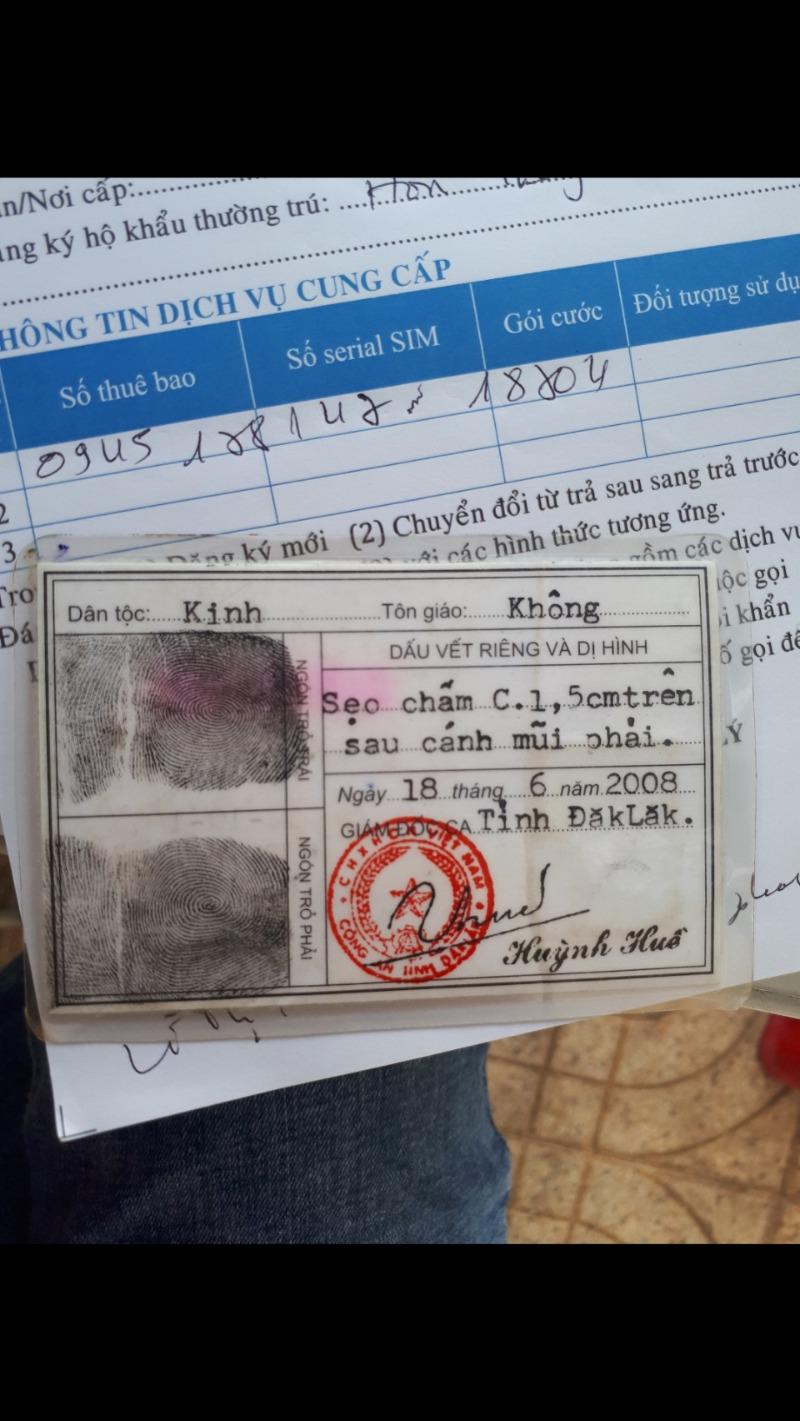 ần/Nơi cấp:
ăng ký hộ khẩu thường trú:
HÔNG TIN DỊCH VỤ CUNG CẤP
Số thuê bao Số serial SIM Gói cước Đối tượng sử dụ
0945 188147 18804
2
3
Đăng ký mới (2) Chuyển đổi từ trả sau sang trả trước
với các hình thức tương ứng.
gồm các dịch vụ
Tro
ộc gọi
Đá
i khẩn
ố gọi đế
Dân tộc: Kinh Tôn giáo: Không
DẤU VẾT RIÊNG VÀ DỊ HÌNH
NGÓN TRỎ TRÁI
Sẹo chấm C.1,5cmtrên
sau cánh mũi phải.
Ngày 18 tháng 6 năm 2008
GIÁM ĐỐC CA Tỉnh ĐăkLăk.
NGÓN TRỎ PHẢI
CHXHCN VIỆT NAM
CÔNG AN TỈNH ĐĂKLĂK
Huỳnh Huề